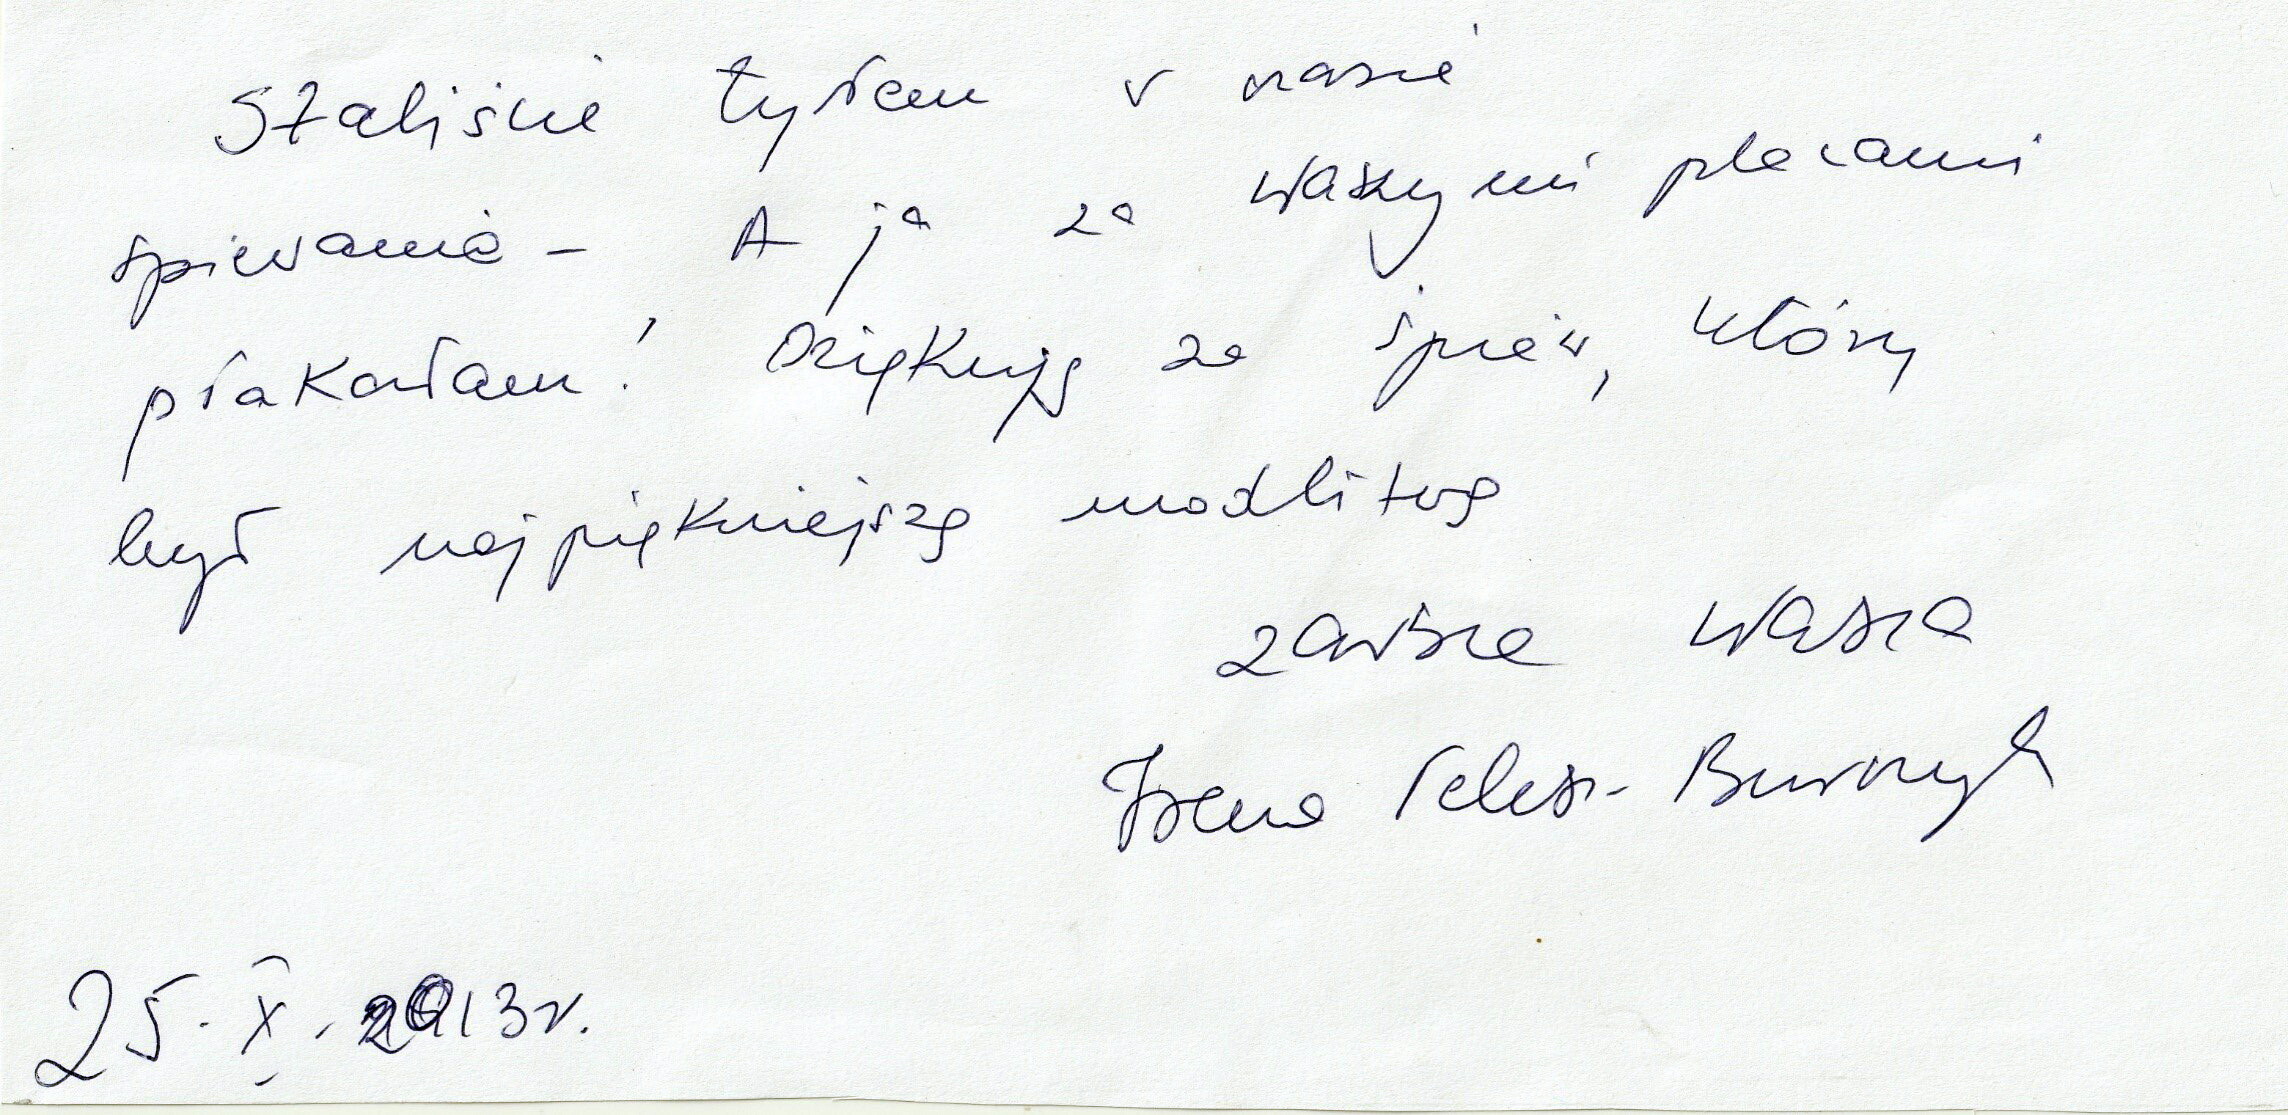 Staliście tyłem w czasie
śpiewania - A ja za waszymi plecami
płakałam! Dziękuję za śpiew, który
był najpiękniejszą modlitwą
zawsze Wasza
Irena Telesz-Burczyk
25.X.2013r.